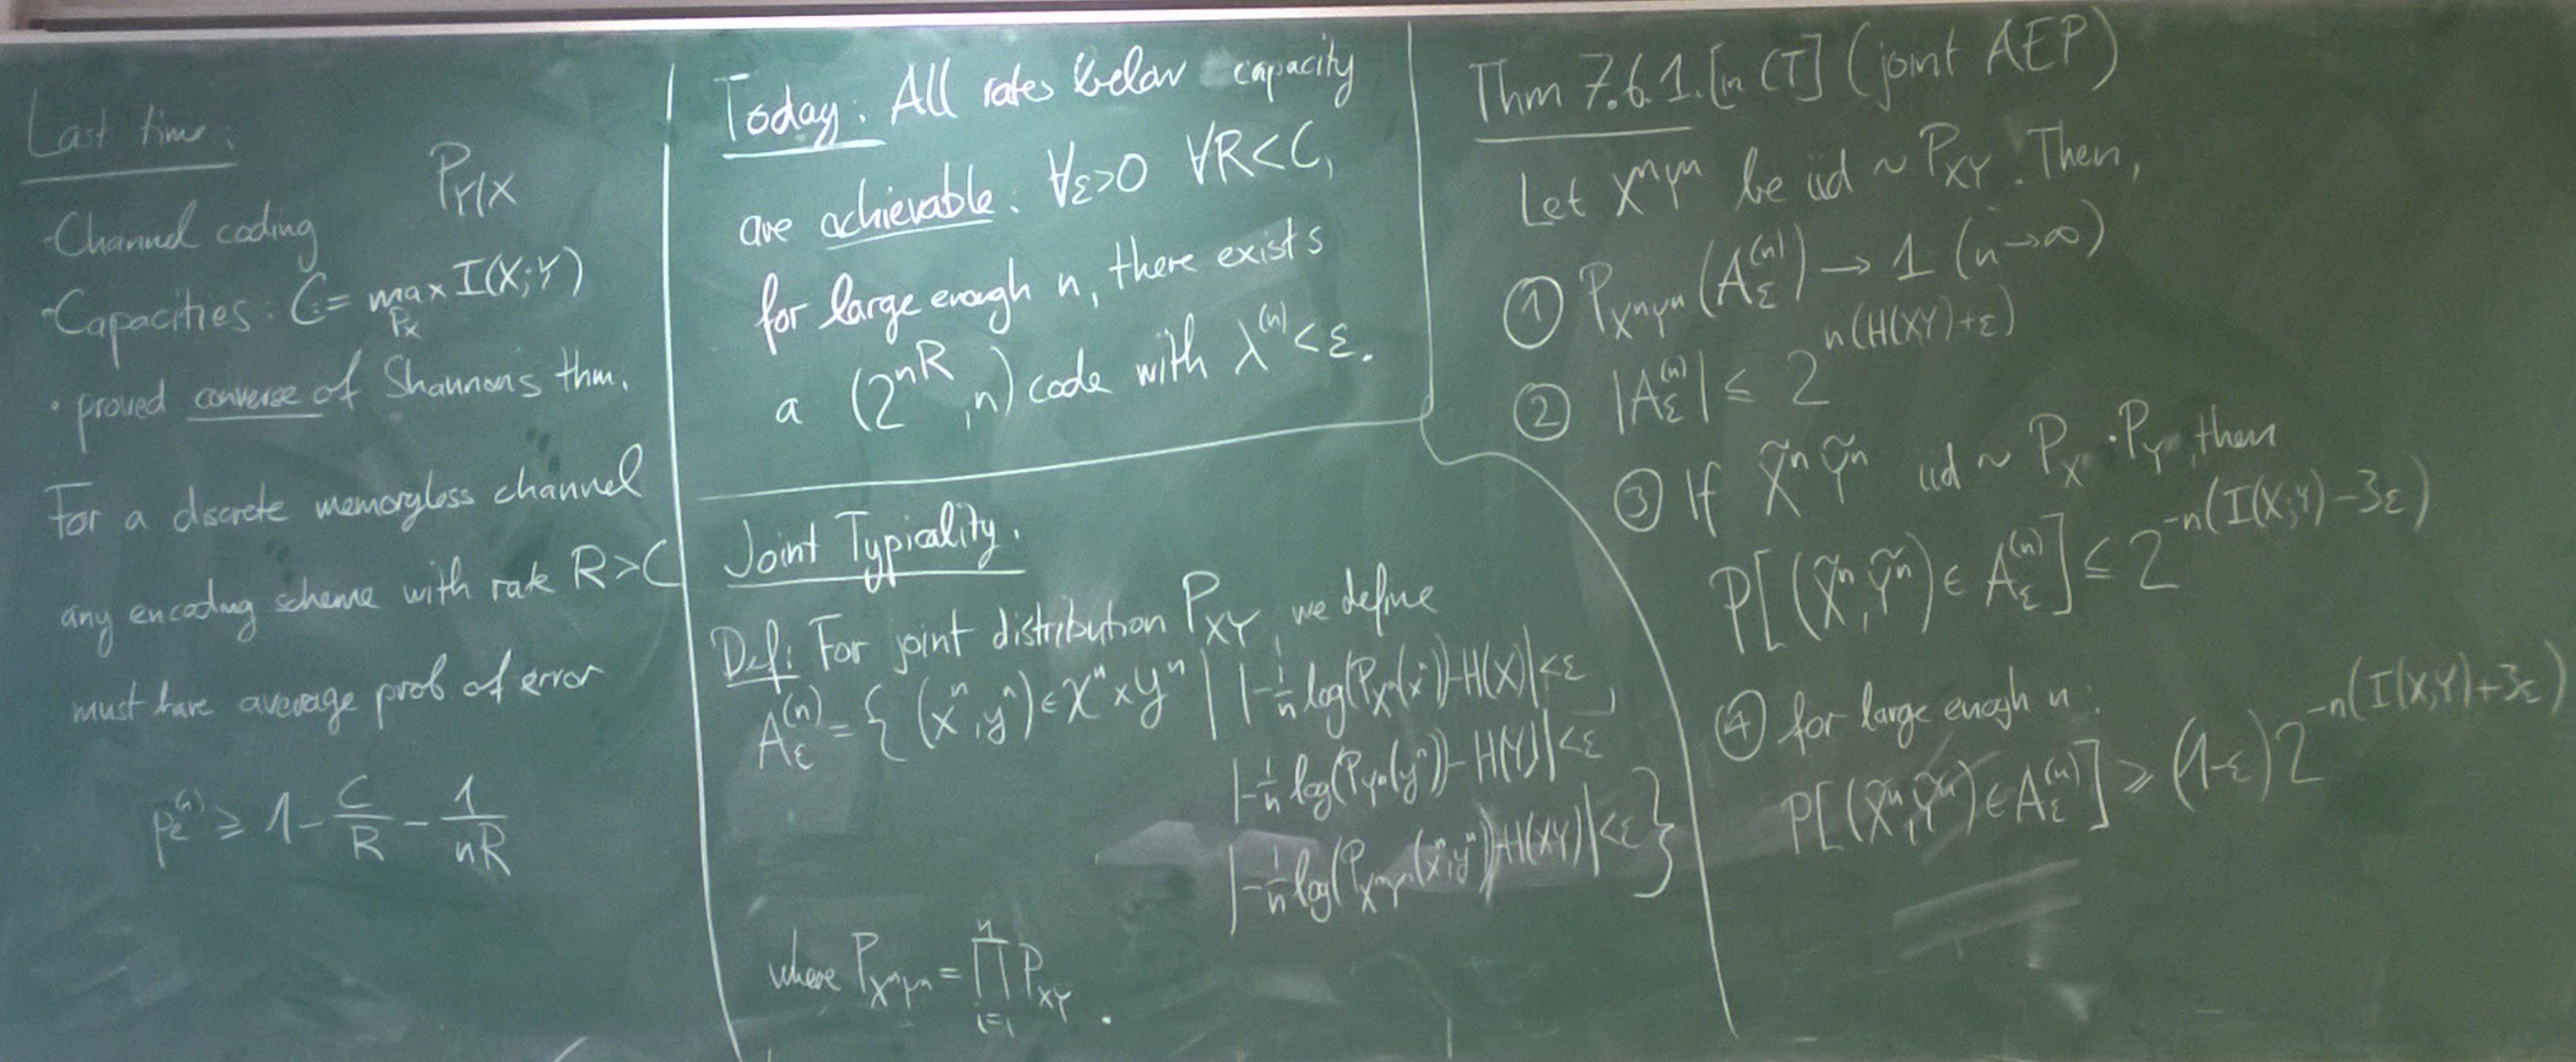 Last time:
P_{Y|X}
- Channel coding
- Capacities: C := max_{P_X} I(X;Y)
• proved converse of Shannon's thm.
For a discrete memoryless channel
any encoding scheme with rate R>C
must have average prob of error
p_e^{(n)} ≥ 1 - C/R - 1/(nR)
Today: All rates below capacity
are achievable: ∀ε>0 ∀R<C,
for large enough n, there exists
a (2^{nR}, n) code with λ^{(n)} < ε.
Joint Typicality.
Def: For joint distribution P_{XY}, we define
A_ε^{(n)} = { (x^n, y^n) ∈ 𝒳^n × 𝒴^n | |-1/n log(P_{X^n}(x^n)) - H(X)| < ε,
|-1/n log(P_{Y^n}(y^n)) - H(Y)| < ε
|-1/n log(P_{X^nY^n}(x^n, y^n)) - H(XY)| < ε }
where P_{X^nY^n} = ∏_{i=1}^{n} P_{XY}.
Thm 7.6.1. [in CT] (joint AEP)
Let X^nY^n be iid ~ P_{XY}. Then,
① P_{X^nY^n}(A_ε^{(n)}) → 1 (n→∞)
② |A_ε^{(n)}| ≤ 2^{n(H(XY)+ε)}
③ If X̃^n Ỹ^n iid ~ P_X · P_Y, then
P[(X̃^n, Ỹ^n) ∈ A_ε^{(n)}] ≤ 2^{-n(I(X;Y)-3ε)}
④ for large enough n:
P[(X̃^n, Ỹ^n) ∈ A_ε^{(n)}] ≥ (1-ε) 2^{-n(I(X;Y)+3ε)}